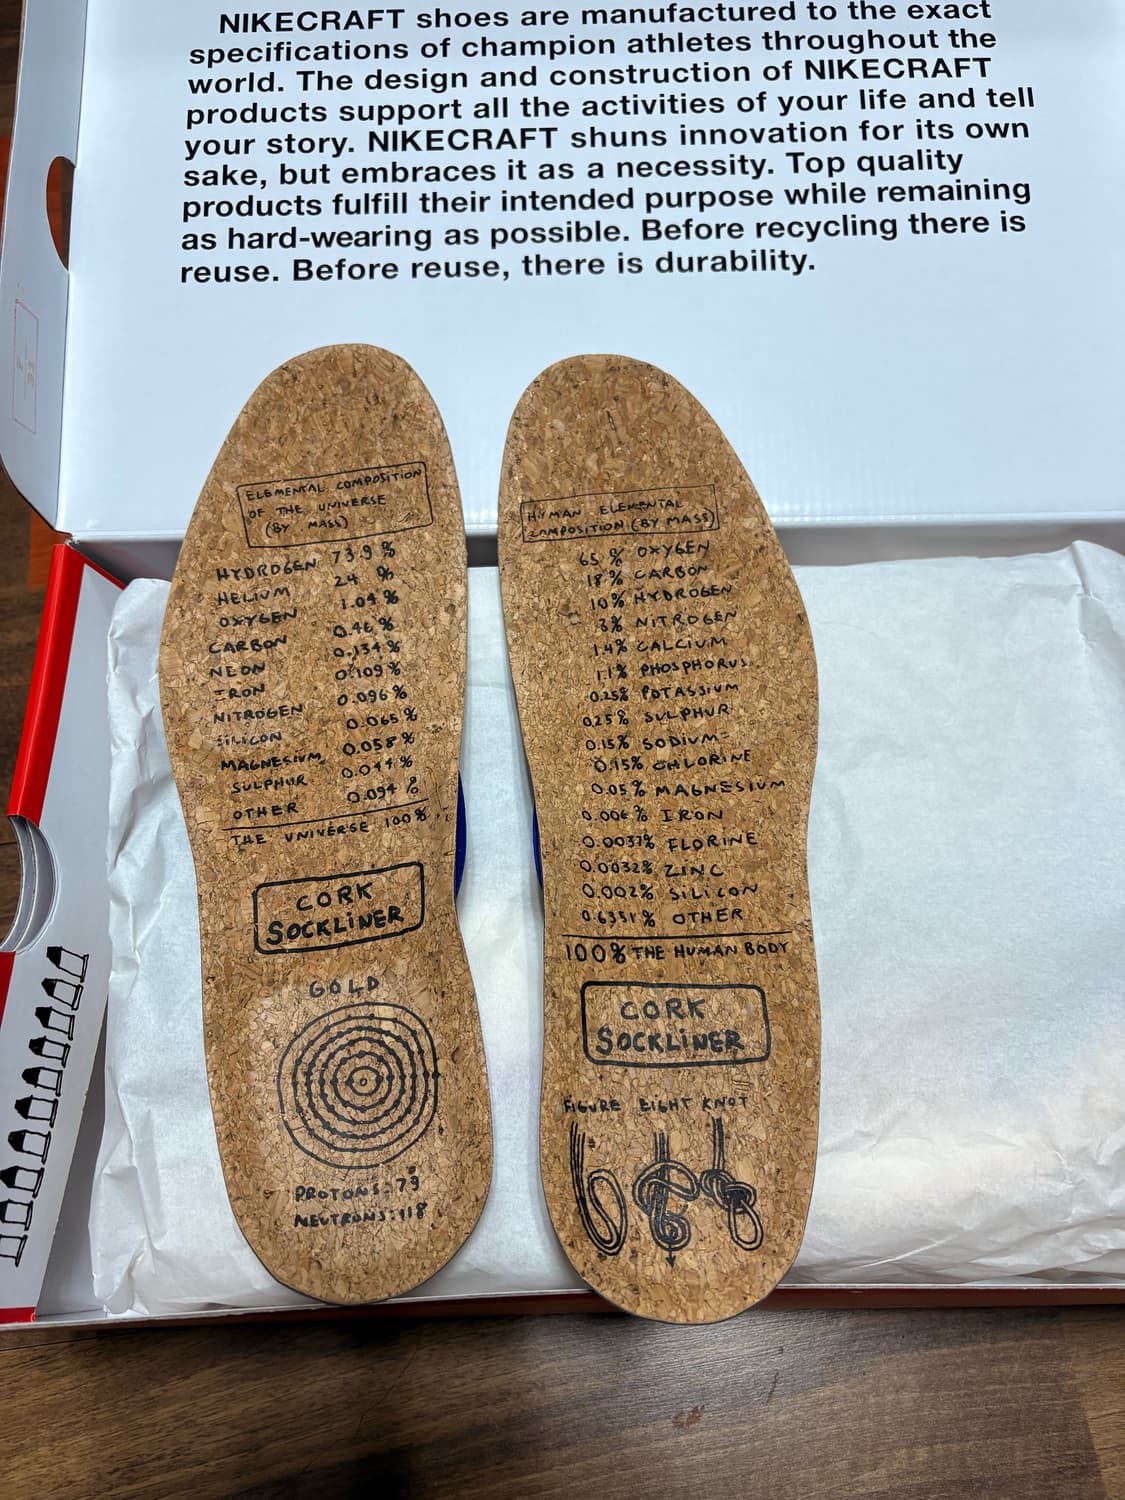 NIKECRAFT shoes are manufactured to the exact
specifications of champion athletes throughout the
world. The design and construction of NIKECRAFT
products support all the activities of your life and tell
your story. NIKECRAFT shuns innovation for its own
sake, but embraces it as a necessity. Top quality
products fulfill their intended purpose while remaining
as hard-wearing as possible. Before recycling there is
reuse. Before reuse, there is durability.
ELEMENTAL COMPOSITION
OF THE UNIVERSE
(BY MASS)
HYDROGEN 73.9 %
HELIUM 24 %
OXYGEN 1.04 %
CARBON 0.46 %
NEON 0.134 %
IRON 0.109 %
NITROGEN 0.096 %
SILICON 0.065 %
MAGNESIUM 0.058 %
SULPHUR 0.044 %
OTHER 0.094 %
THE UNIVERSE 100%
CORK
SOCKLINER
GOLD
PROTONS: 79
NEUTRONS: 118
HUMAN ELEMENTAL
COMPOSITION (BY MASS)
65 % OXYGEN
18% CARBON
10% HYDROGEN
3% NITROGEN
1.4% CALCIUM
1.1% PHOSPHORUS
0.25% POTASSIUM
0.25% SULPHUR
0.15% SODIUM
0.15% CHLORINE
0.05% MAGNESIUM
0.006% IRON
0.0037% FLORINE
0.0032% ZINC
0.002% SILICON
0.6351% OTHER
100% THE HUMAN BODY
CORK
SOCKLINER
FIGURE EIGHT KNOT